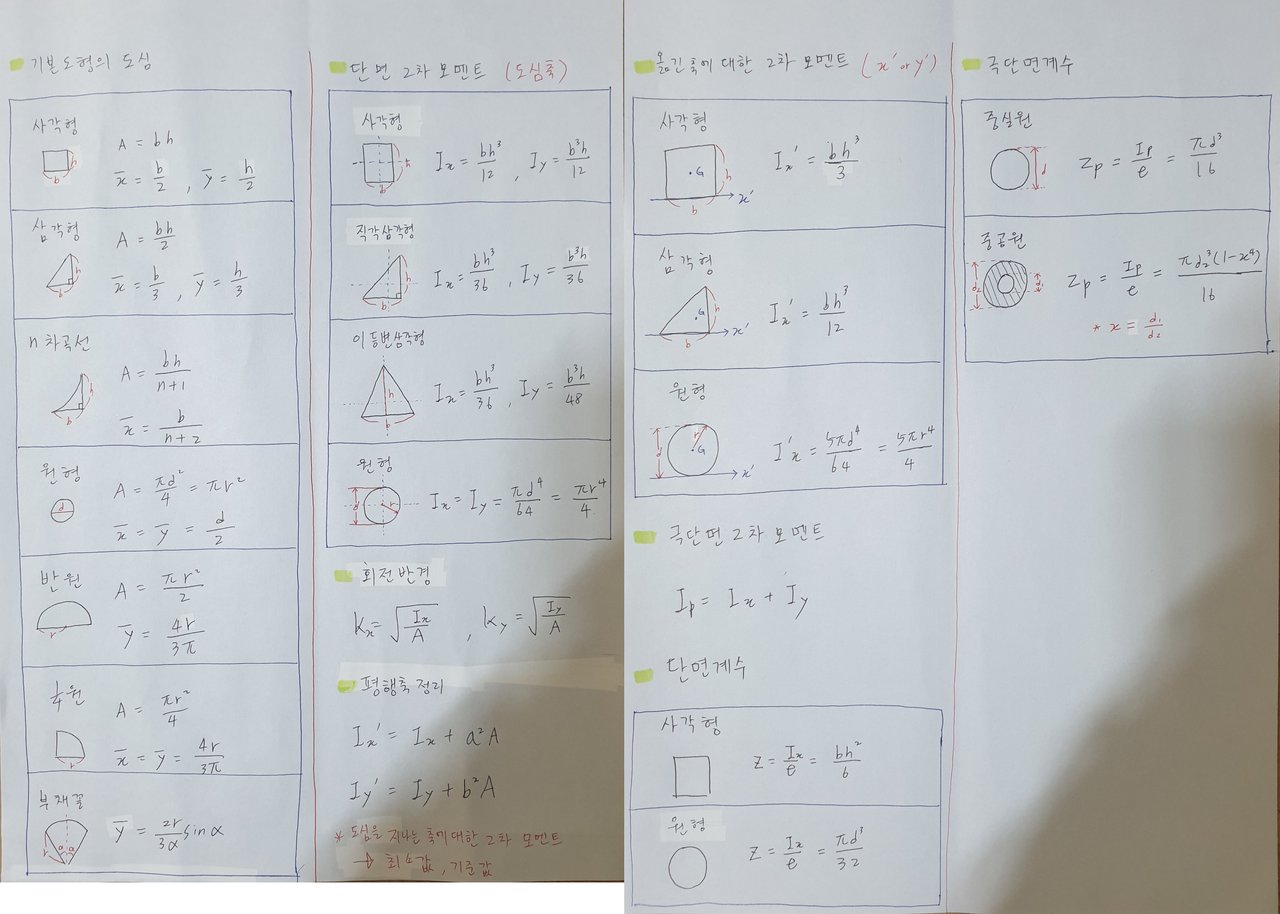 기본도형의 도심
사각형
A = bh
x̄ = b/2 , ȳ = h/2
h
b
삼각형
A = bh/2
x̄ = b/3 , ȳ = h/3
h
b
n차곡선
A = bh/n+1
x̄ = b/n+2
h
b
원형
d
A = πd²/4 = πr²
x̄ = ȳ = d/2
반원
A = πr²/2
ȳ = 4r/3π
r
1/4원
A = πr²/4
x̄ = ȳ = 4r/3π
r
부채꼴
ȳ = 2r/3α sinα
r α α
단면 2차 모멘트 (도심축)
사각형
Ix = bh³/12 , Iy = b³h/12
h
b
직각삼각형
Ix = bh³/36 , Iy = b³h/36
h
b
이등변삼각형
Ix = bh³/36 , Iy = b³h/48
h
b
원형
d r
Ix = Iy = πd⁴/64 = πr⁴/4
회전반경
kx = √Ix/A , ky = √Iy/A
평행축 정리
Ix' = Ix + a²A
Iy' = Iy + b²A
* 도심을 지나는 축에 대한 2차 모멘트
→ 최소값, 기준값
옮긴축에 대한 2차 모멘트 (x' or y')
사각형
Ix' = bh³/3
G
h
x'
b
삼각형
Ix' = bh³/12
G
h
x'
b
원형
d r G
x'
I'x = 5πd⁴/64 = 5πr⁴/4
극단면 2차 모멘트
Ip = Ix + Iy
단면계수
사각형
Z = Ix/e = bh²/6
원형
Z = Ix/e = πd³/32
극단면계수
중실원
d
Zp = Ip/e = πd³/16
중공원
d₂ d₁
Zp = Ip/e = πd₂³(1-x⁴)/16
* x = d₁/d₂